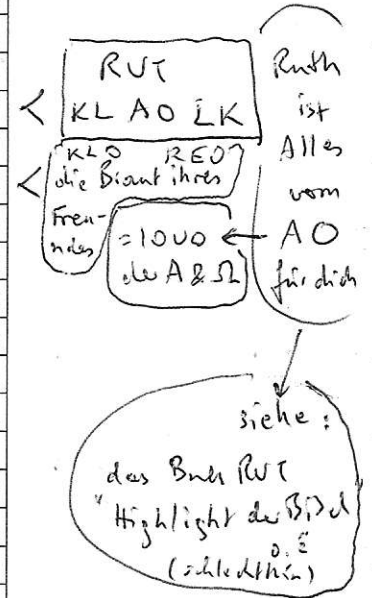 RUT
< KL AO LK
KLO REO
< die Braut ihres
Freun-
des
= 10 v 0
der A & Ω
Ruth
ist
Alles
vom
AO
für dich
siehe:
das Buch RUT
"Highlight der Bibel
(schlechthin)